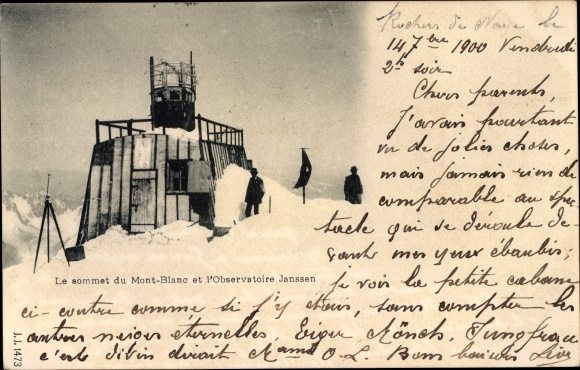 Rochers de Naye le
14 7bre 1900 Vendredi
2h soir
Chers parents,
J'avais pourtant
vu de jolies choses,
mais jamais rien de
comparable au spec
tacle qui se déroule de-
vant mes yeux ébaubis;
je vois la petite cabane
ci-contre comme si j'y étais, sans compter les
autres neiges éternelles, Eiger Mönch, Jungfrau
c'est divin dirait Mame O.L. Bons baisers
Le sommet du Mont-Blanc et l'Observatoire Janssen
J.J. 1473